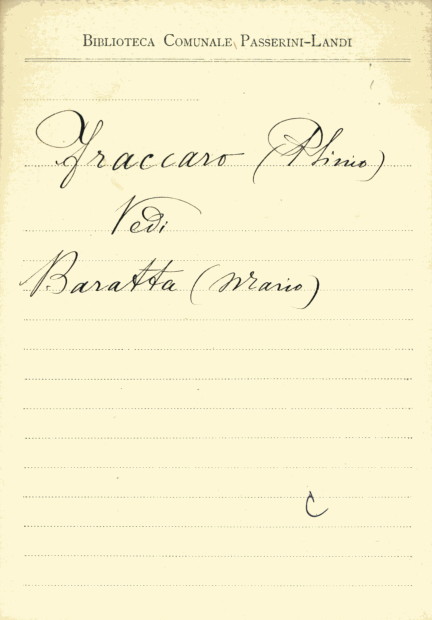 BIBLIOTECA COMUNALE PASSERINI-LANDI
Fraccaro (Plinio)
Vedi
Baratta (Mario)
C